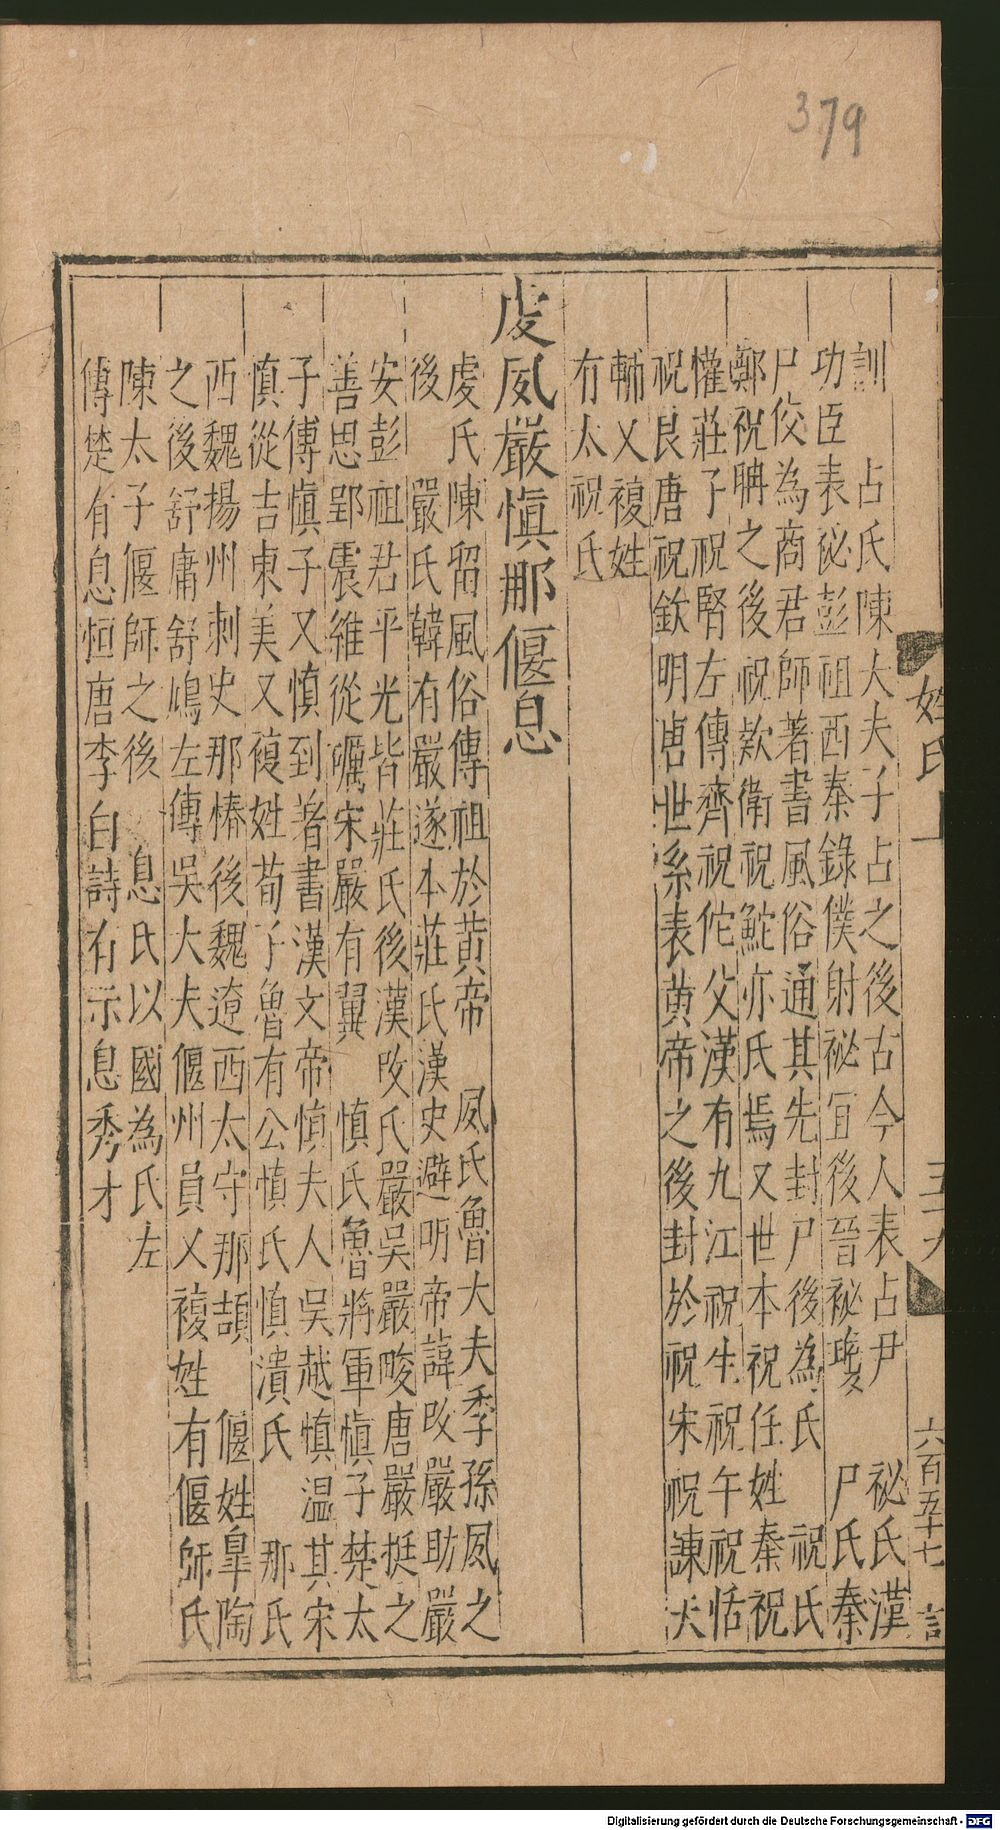 379
訓　占氏陳大夫子占之後古今人表占尹　祕氏漢
功臣表祕彭祖西秦錄僕射祕宜後晉祕瓊　尸氏秦
尸佼為商君師著書風俗通其先封尸後為氏　祝氏
鄭祝聃之後祝欵衛祝鮀亦氏焉又世本祝任姓秦祝
懽莊子祝腎左傳齊祝佗父漢有九江祝生祝午祝恬
祝良唐祝欽明唐世系表黄帝之後封於祝宋祝諫大
輔又複姓
有太祝氏
虔夙嚴慎那偃息
虔氏陳留風俗傳祖於黄帝　夙氏魯大夫季孫夙之
後　嚴氏韓有嚴遂本莊氏漢史避明帝諱改嚴助嚴
安彭祖君平光皆莊氏後漢改氏嚴吳嚴畯唐嚴挺之
善思郢震維從礪宋嚴有翼　慎氏魯將軍慎子楚太
子傅慎子又慎到著書漢文帝慎夫人吳越慎温其宋
慎從吉東美又複姓荀子魯有公慎氏慎潰氏　那氏
西魏揚州刺史那椿後魏遼西太守那頡　偃姓皐陶
之後舒庸舒鳩左傳吳大夫偃州員又複姓有偃師氏
陳太子偃師之後　息氏以國為氏左
傳楚有息恒唐李白詩有示息秀才
姓氏
六百五十七
Digitalisierung gefördert durch die Deutsche Forschungsgemeinschaft - DFG